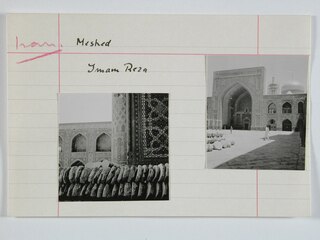 Iran
Meshed
Imam Reza